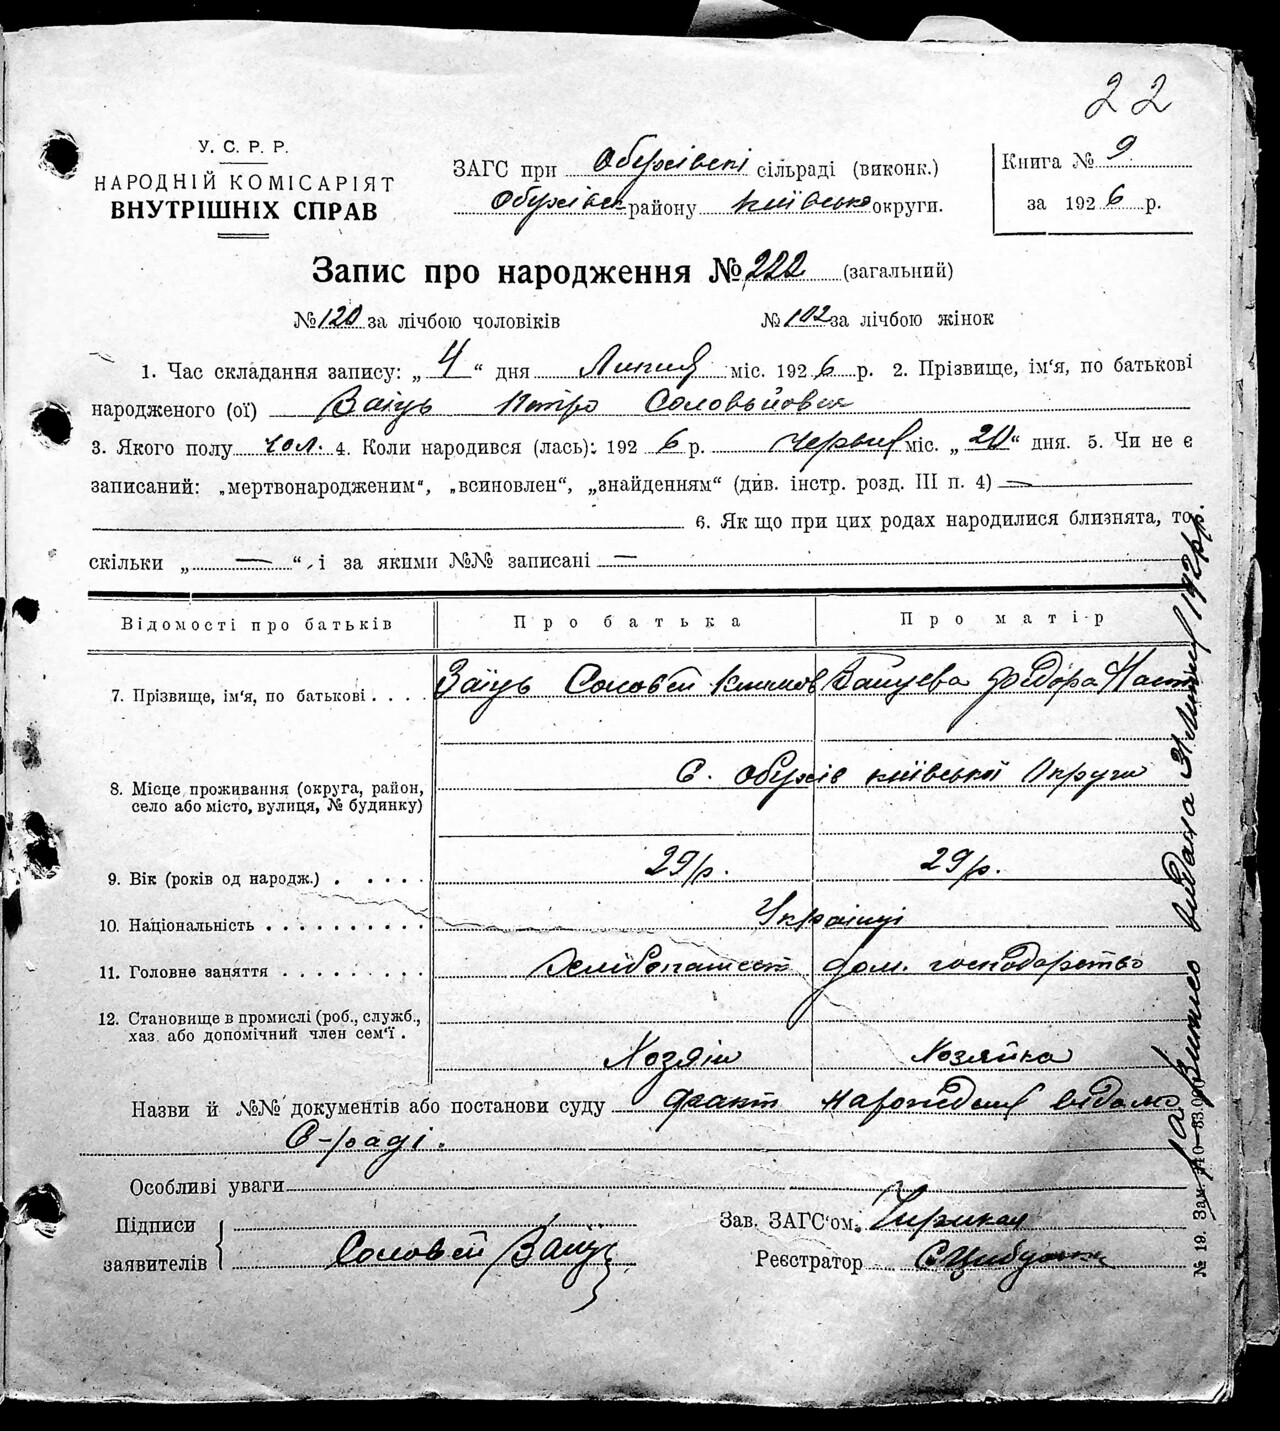 22
У. С. Р. Р.
НАРОДНІЙ КОМІСАРІЯТ
ВНУТРІШНІХ СПРАВ
ЗАГС при Обухівскі сільраді (виконк.)
Обухівс району Київсько округи.
Книга № 9
за 1926 р.
Запис про народження № 222 (загальний)
№ 120 за лічбою чоловіків № 102 за лічбою жінок
1. Час складання запису: „ 4 “ дня Липня міс. 1926 р. 2. Прізвище, ім‘я, по батькові
народженого (ої) Заїць Петро Соловьйович
3. Якого полу чол. 4. Коли народився (лась): 1926 р. Червня міс. „ 20 “ дня. 5. Чи не є
записаний: „мертвонародженим“, „всиновлен“, „знайденням“ (див. інстр. розд. III п. 4) —
6. Як що при цих родах народилися близнята, то
скільки „ — “, і за якими №№ записані —
Відомості про батьків Про батька Про матір
7. Прізвище, ім‘я, по батькові . . . . Заїць Соловей Климов Зайцева Федора
8. Місце проживання (округа, район,
село або місто, вулиця, № будинку)
С. Обухів київської Округи
9. Вік (років од народж.) . . . . . 29 р. 29 р.
10. Національність . . . . . . . . . . Українці
11. Головне заняття . . . . . . . . . Хлібопашест дом. господарство
12. Становище в промислі (роб., служб.,
хаз. або допомічний член сем‘ї .
Хозяїн Хозяйка
Назви й №№ документів або постанови суду факт народження відомо
С-раді.
Особливі уваги
Підписи
заявителів
Соловей Заїць
Зав. ЗАГС‘ом.
Реєстратор
Виписо видана 31 Липня 192 рр.
№ 19. Зам.